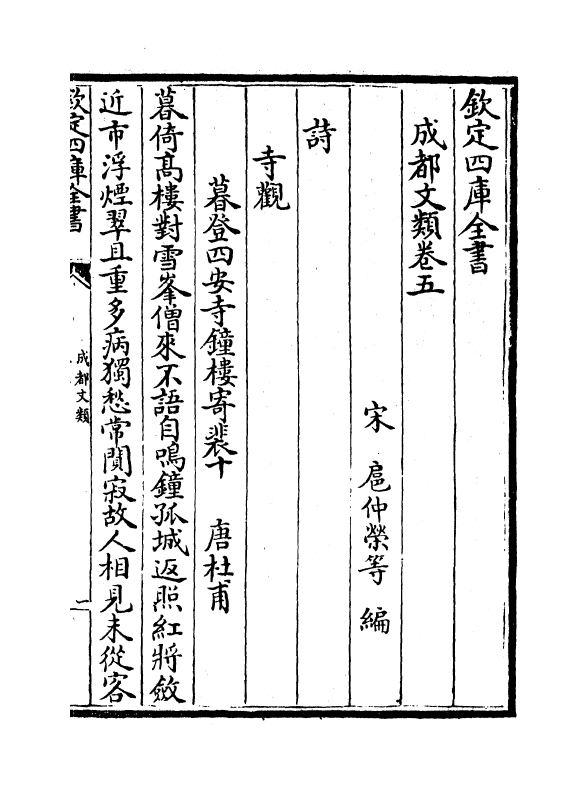 欽定四庫全書
成都文類卷五
宋 扈仲榮等 編
詩
寺觀
暮登四安寺鐘樓寄裴十 唐杜甫
暮倚高樓對雪峯僧來不語自鳴鐘孤城返照紅將斂
近市浮煙翠且重多病獨愁常闃寂故人相見未從容
欽定四庫全書
成都文類
一